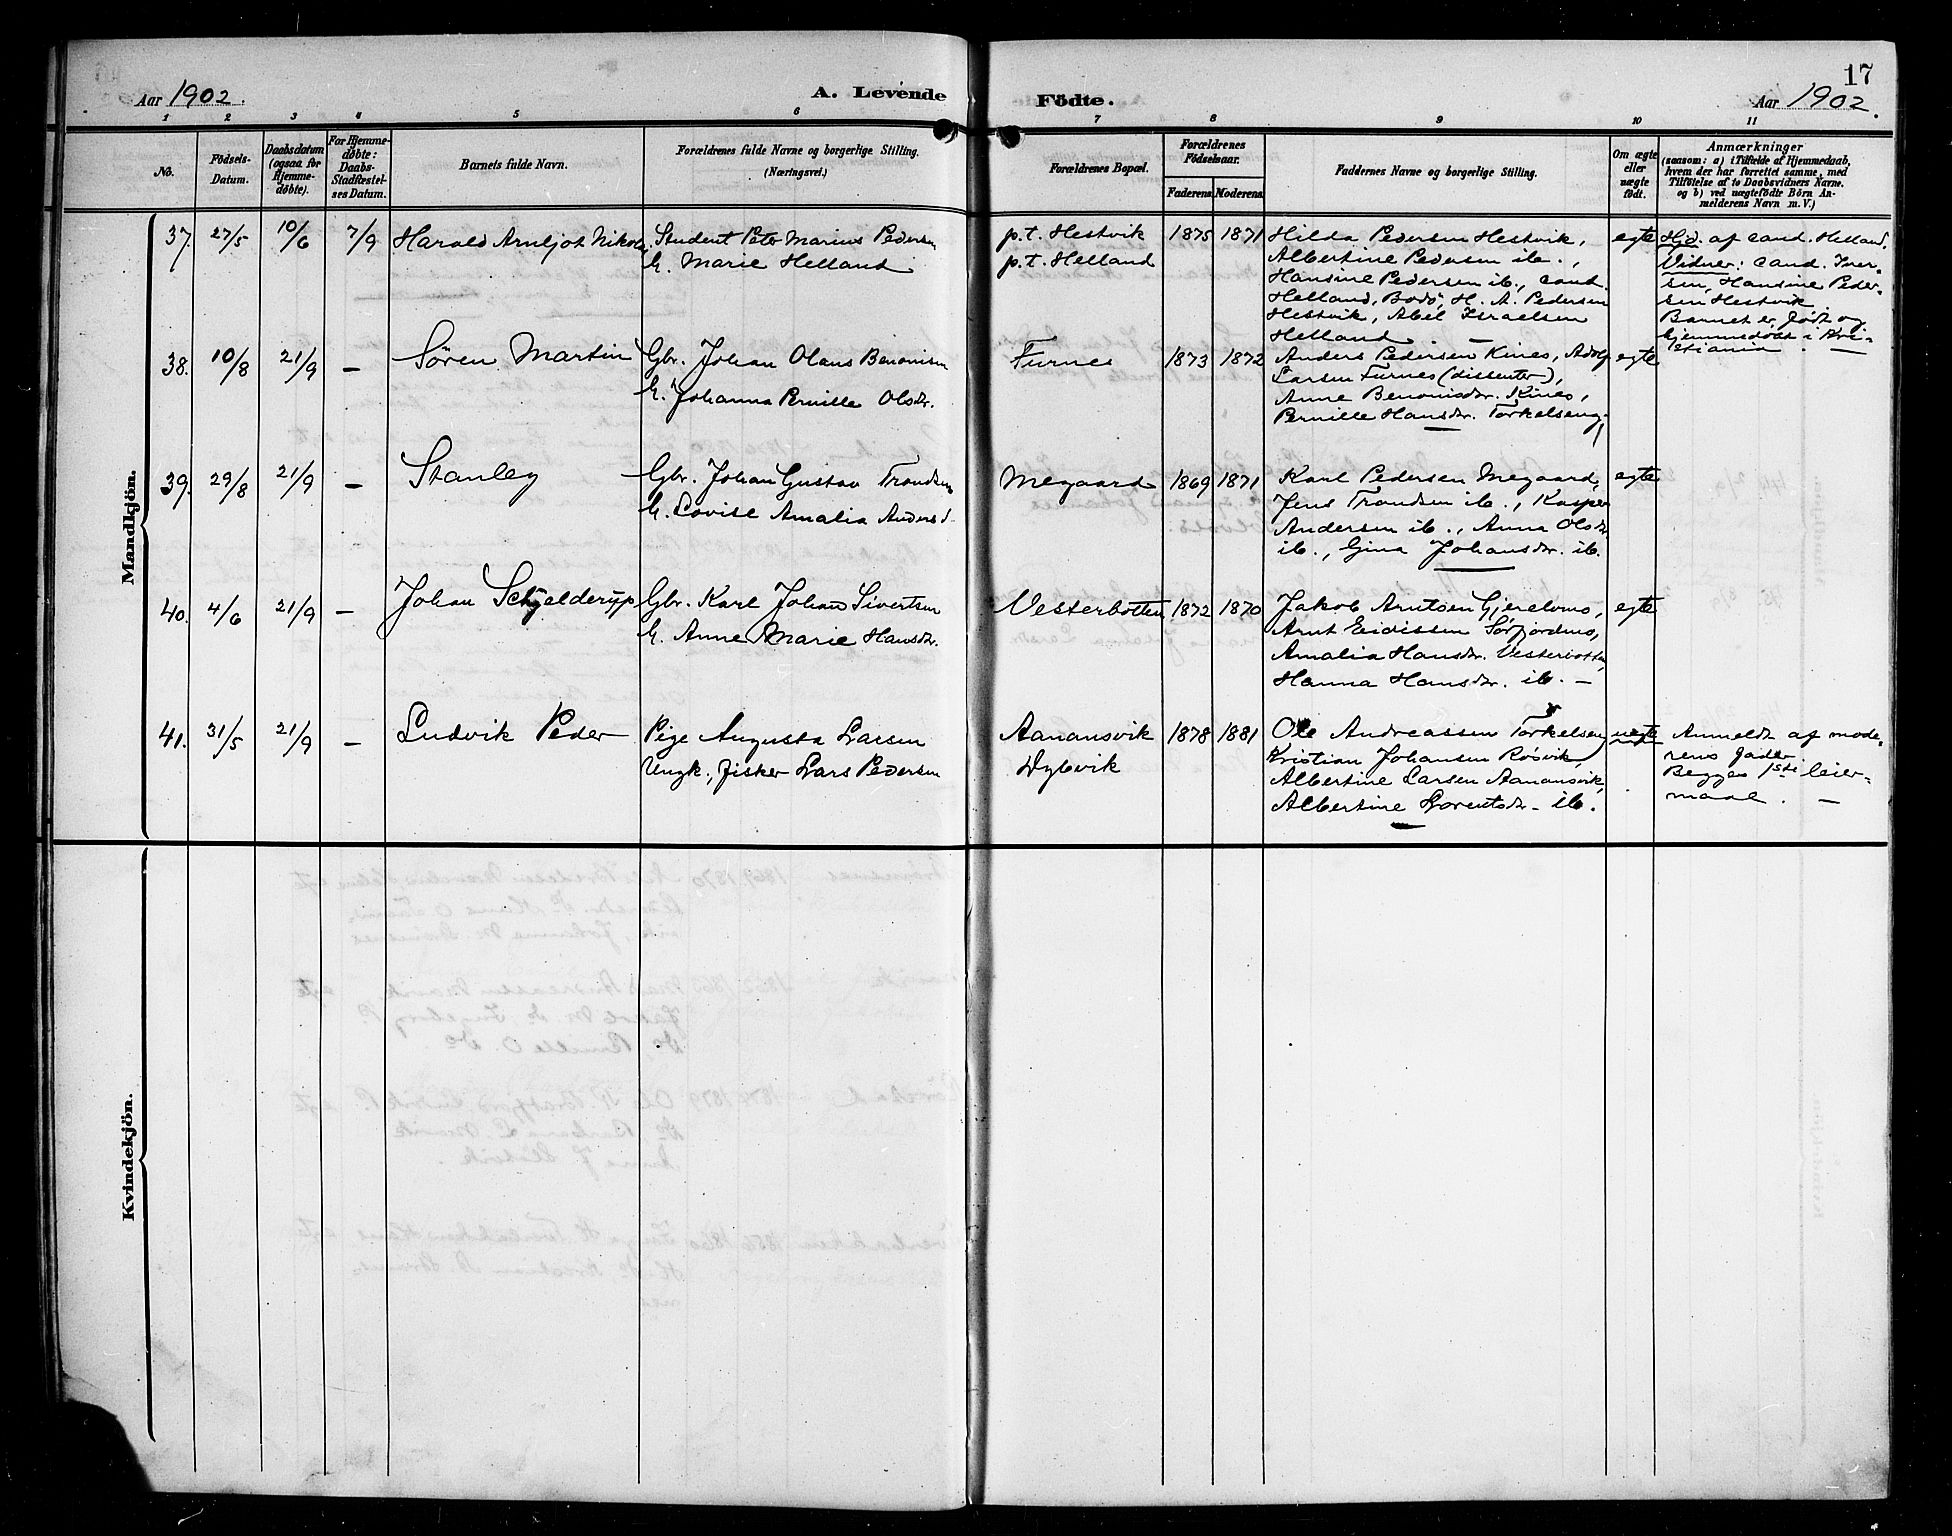 17
Aar 1902.
A. Levende
Födte.
Aar 1902.
1 2 3 4 5 6 7 8 9 10 11
No.
Födsels-
Datum.
Daabsdatum
(ogsaa for
Hjemme-
döbte).
For Hjemme-
döbte:
Daabs-
Stadfæstel-
ses Datum.
Barnets fulde Navn.
Forældrenes fulde Navne og borgerlige Stilling.
(Næringsvei.)
Forældrenes Bopæl.
Forældrenes
Födselsaar.
Faderens Moderens
Faddernes Navne og borgerlige Stilling.
Om ægte
eller
uægte
födt.
Anmærkninger
(saasom: a) i Tilfælde af Hjemmedaab,
hvem der har forrettet samme, med
Tilföielse af to Daabsvidners Navne.
og b) ved uægtefödte Börn An-
melderens Navn m. V.)
Mandkjön.
37. 27/5 10/6 7/9 Harald Arnljot Nikolai
Student Peter Marius Pedersen
h. Marie Helland
p.t. Hestvik
p.t. Helland
1875 1871
Hilda Pedersen Hestvik,
Albertine Pedersen ib.,
Hansine Pedersen ib., cand.
Helland, Bodö, H. A. Pedersen
Hestvik, Abel Israelsen
Helland. —
egte
Hjd. af cand. Helland.
Vidner: cand. Iver-
sen, Hansine Peder-
sen Hestvik
Barnet er født og
hjemmedøbt i Kri-
stiania. —
38. 10/8 21/9 — Søren Martin
Gbr. Johan Olaus Benonisen
h. Johanna Pernille Olsdr.
Furnes
1873 1872
Anders Pedersen Kines, Adolf
Larsen Furnes (dissenter),
Anne Benonisdr. Kines,
Pernille Hansdr. Torkelseng.
egte
39. 29/8 21/9 — Stanley
Gbr. Johan Gustav Trondsen
h. Lovise Amalia Andersd.
Megaard
1869 1871
Karl Pedersen Megaard,
Jens Trondsen ib., Kasper
Andersen ib., Anna Olsdr.
ib., Gina Johansdr. ib.
egte
40. 4/6 21/9 — Johan Schjelderup
Gbr. Karl Johan Sivertsen
h. Anne Marie Hansdr.
Vesterbotten
1872 1870
Jakob Arntsen Gjerelvmo,
Arnt Eidissen Sørfjordmo,
Amalia Hansdr. Vesterbotten,
Hanna Hansdr. ib. —
egte
41. 31/5 21/9 — Ludvik Peder
Pige Augusta Larsen
Ungk., fisker Lars Pedersen
Aanansvik
Dybvik
1878 1881
Ole Andreassen Torkelseng
Kristian Johansen Røsvik,
Albertine Larsen Aanansvik,
Albertine Lorentsdr. ib.
uegte
Anmeldt af mode-
rens fader.
Begges 1ste leier-
maal. —
Kvindekjön.